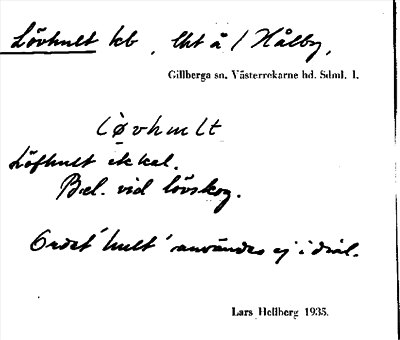 Lövhult kb, lht å / Hålby,
Gillberga sn. Västerrekarne hd. Sdml. l.
lövhult
Löfhult ek kal.
Bel. vid lövskog.
Ordet 'hult' användes ej i dial.
Lars Hellberg 1935.